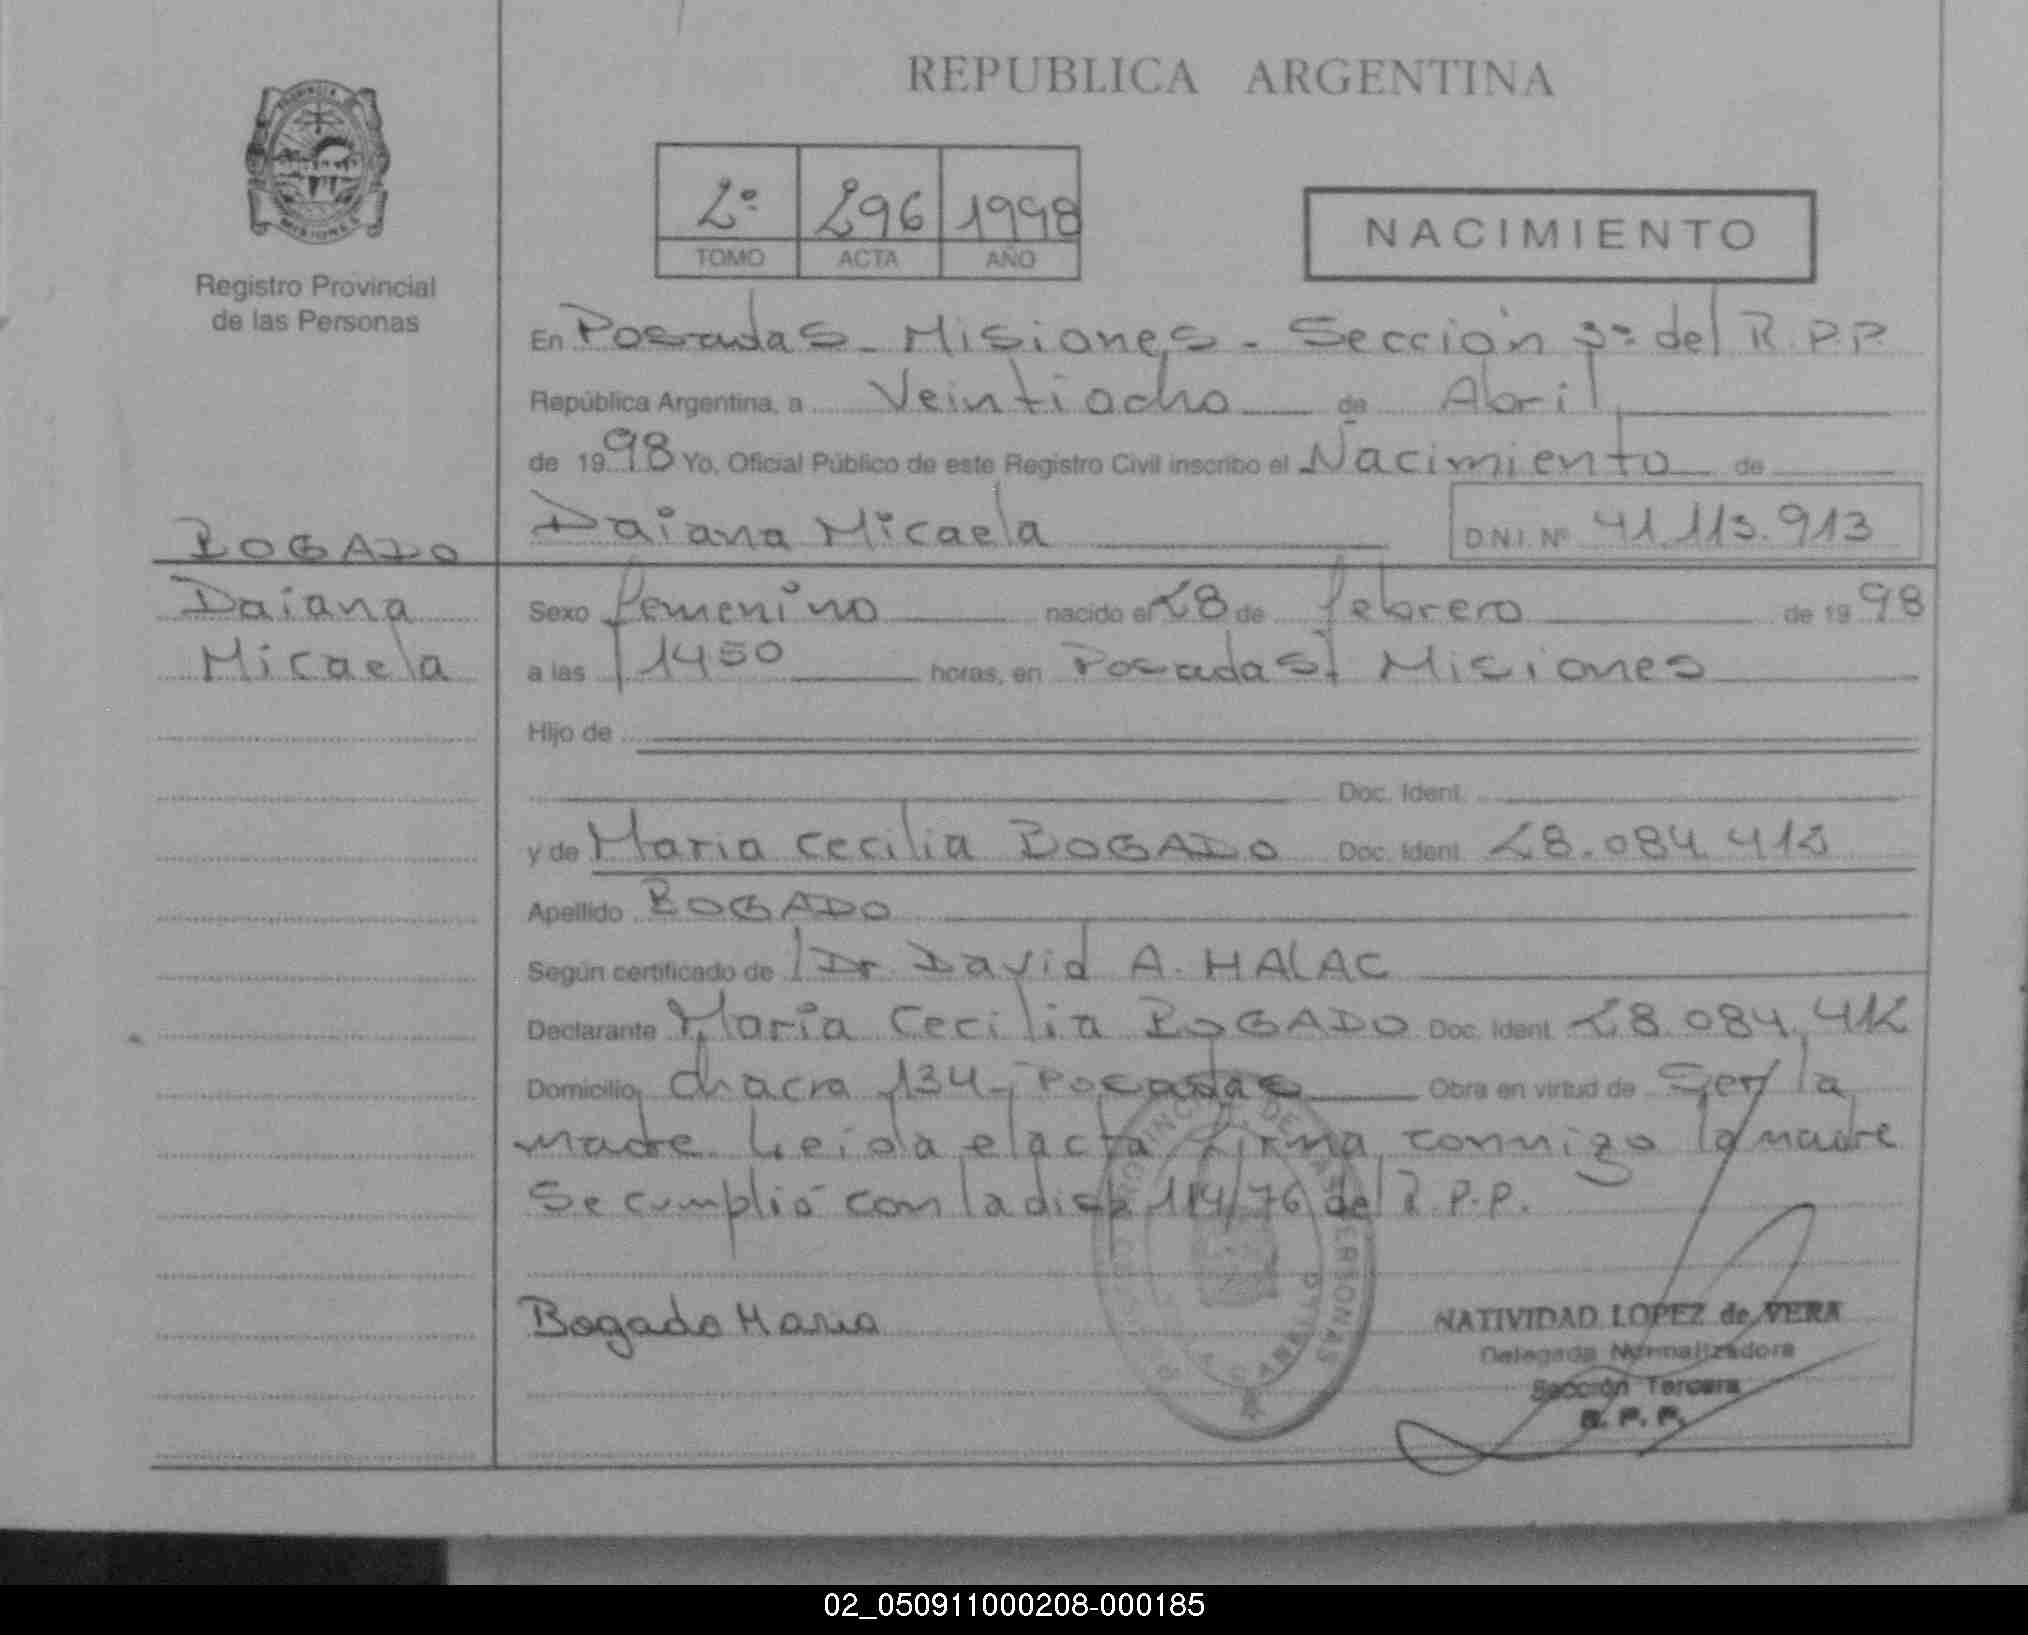 REPUBLICA ARGENTINA
2º 296 1998
TOMO ACTA AÑO
NACIMIENTO
Registro Provincial
de las Personas
En Posadas - Misiones - Sección 3ª del R.P.P.
República Argentina, a Veintiocho de Abril
de 1998 Yo, Oficial Público de este Registro Civil inscribo el Nacimiento de
Daiana Micaela D.N.I. Nº 41.113.913
BOGADO
Daiana
Micaela
Sexo femenino nacido el 28 de febrero de 1998
a las 1450 horas, en Posadas, Misiones
Hijo de
Doc. Ident.
y de Maria Cecilia BOGADO Doc. Ident. 28.084.412
Apellido BOGADO
Según certificado de Dr David A. HALAC
Declarante Maria Cecilia BOGADO Doc. Ident. 28.084.412
Domicilio chacra 134 - Posadas Obra en virtud de Ser la
madre. Leida el acta firma conmigo la madre
Se cumplió con la disp 114/76 del R.P.P.
Bogado Maria
NATIVIDAD LOPEZ de VERA
Delegada Normalizadora
Sección Tercera
R. P. P.
02_050911000208-000185